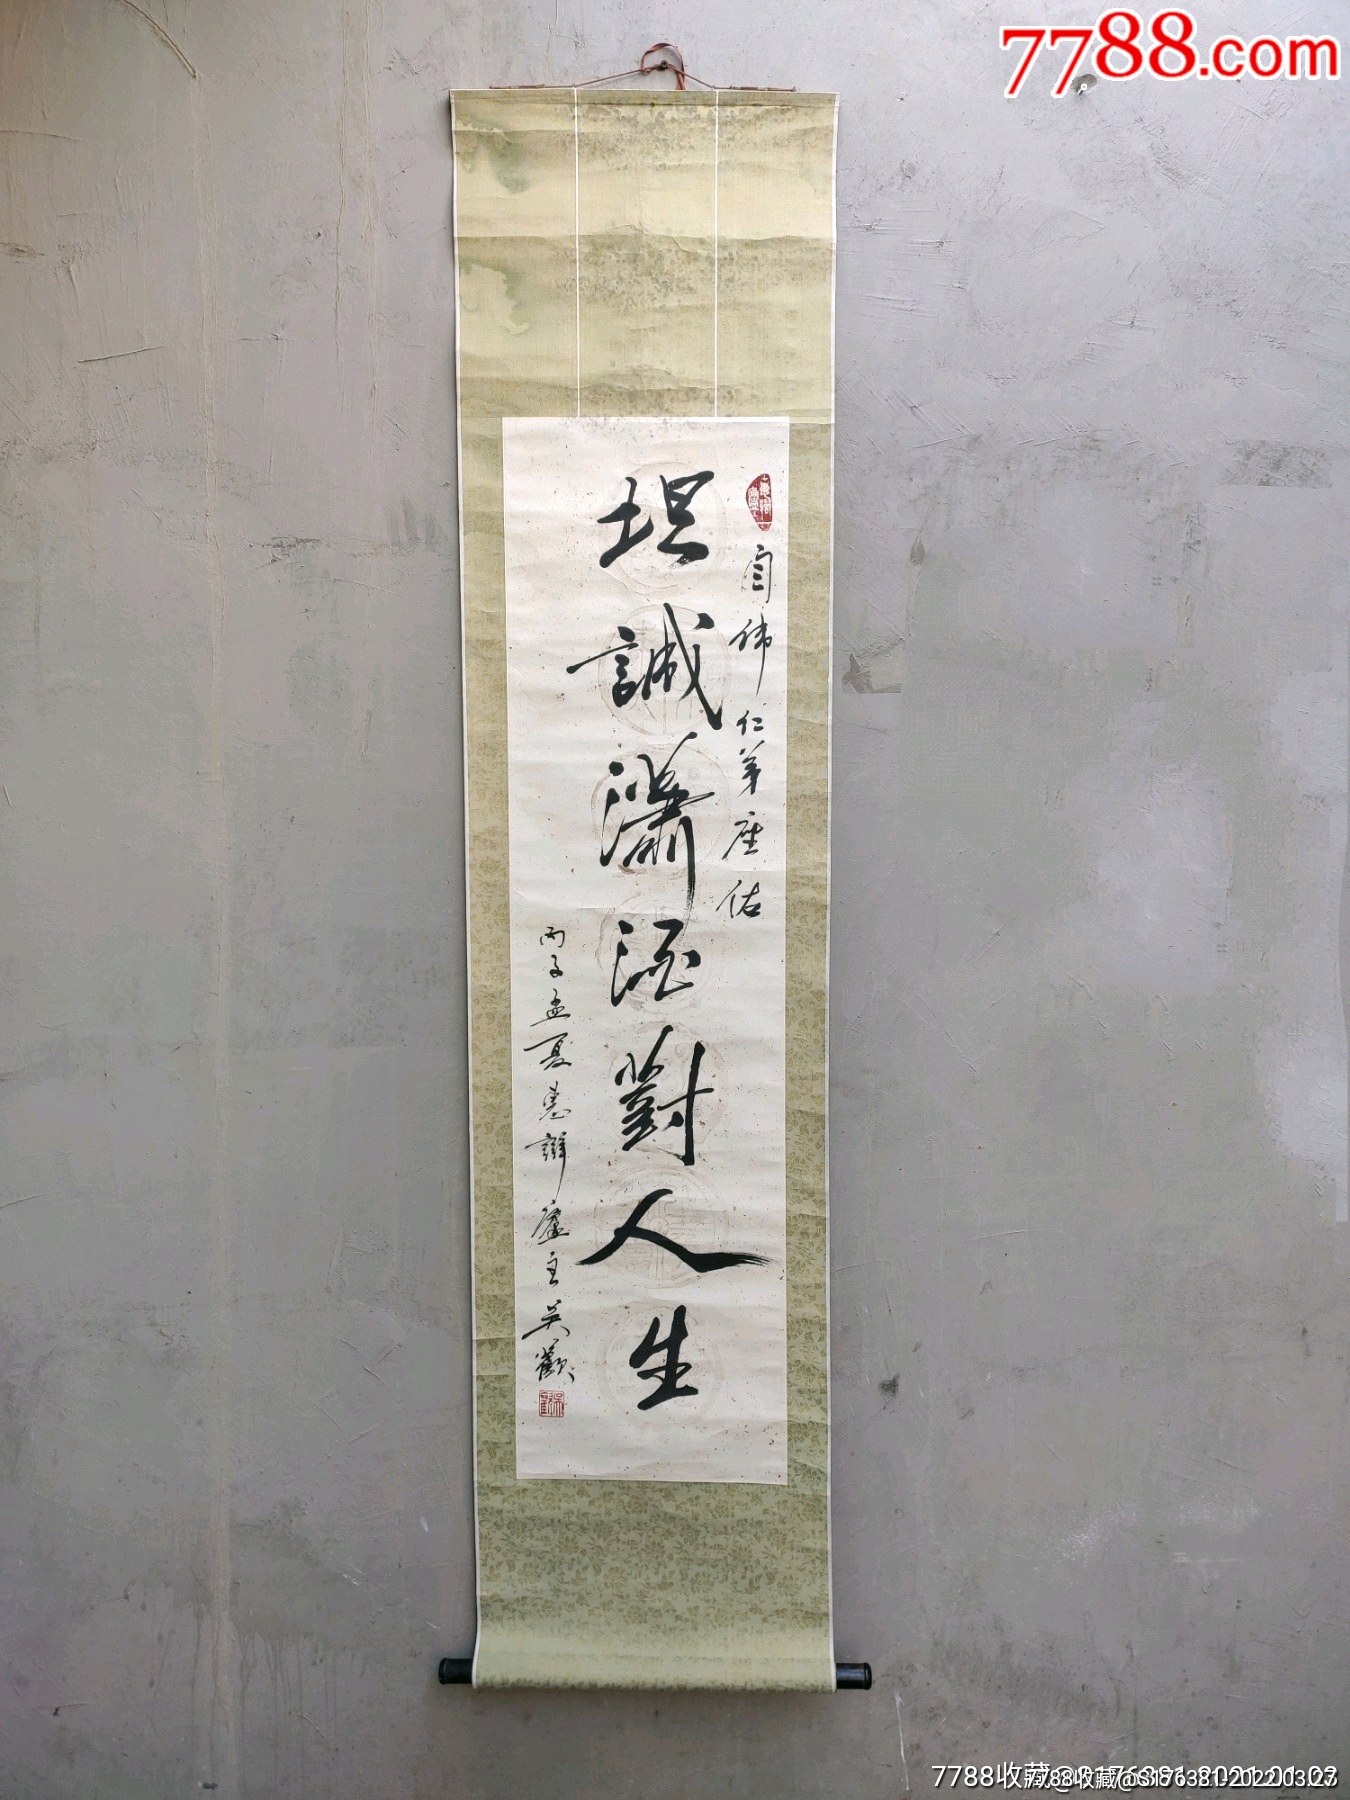 7788.com
闫伟仁弟座佑
坦誠瀟洒對人生
丙子孟夏 廬主吴歡
7788收藏